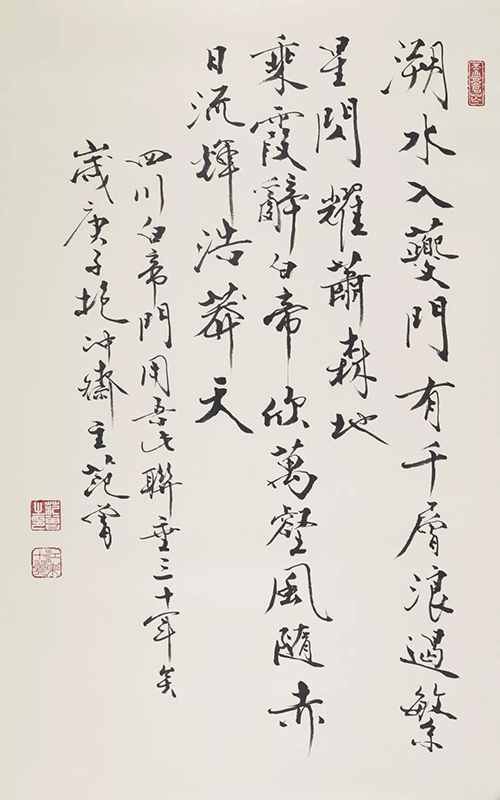 溯水入夔門有千層浪遏繁
星閃耀蕭森地
乘霞辭白帝欣萬壑風隨赤
日流輝浩莽天
四川白帝門用吾此聯垂三十年矣
歲庚子抱冲齋主范曾